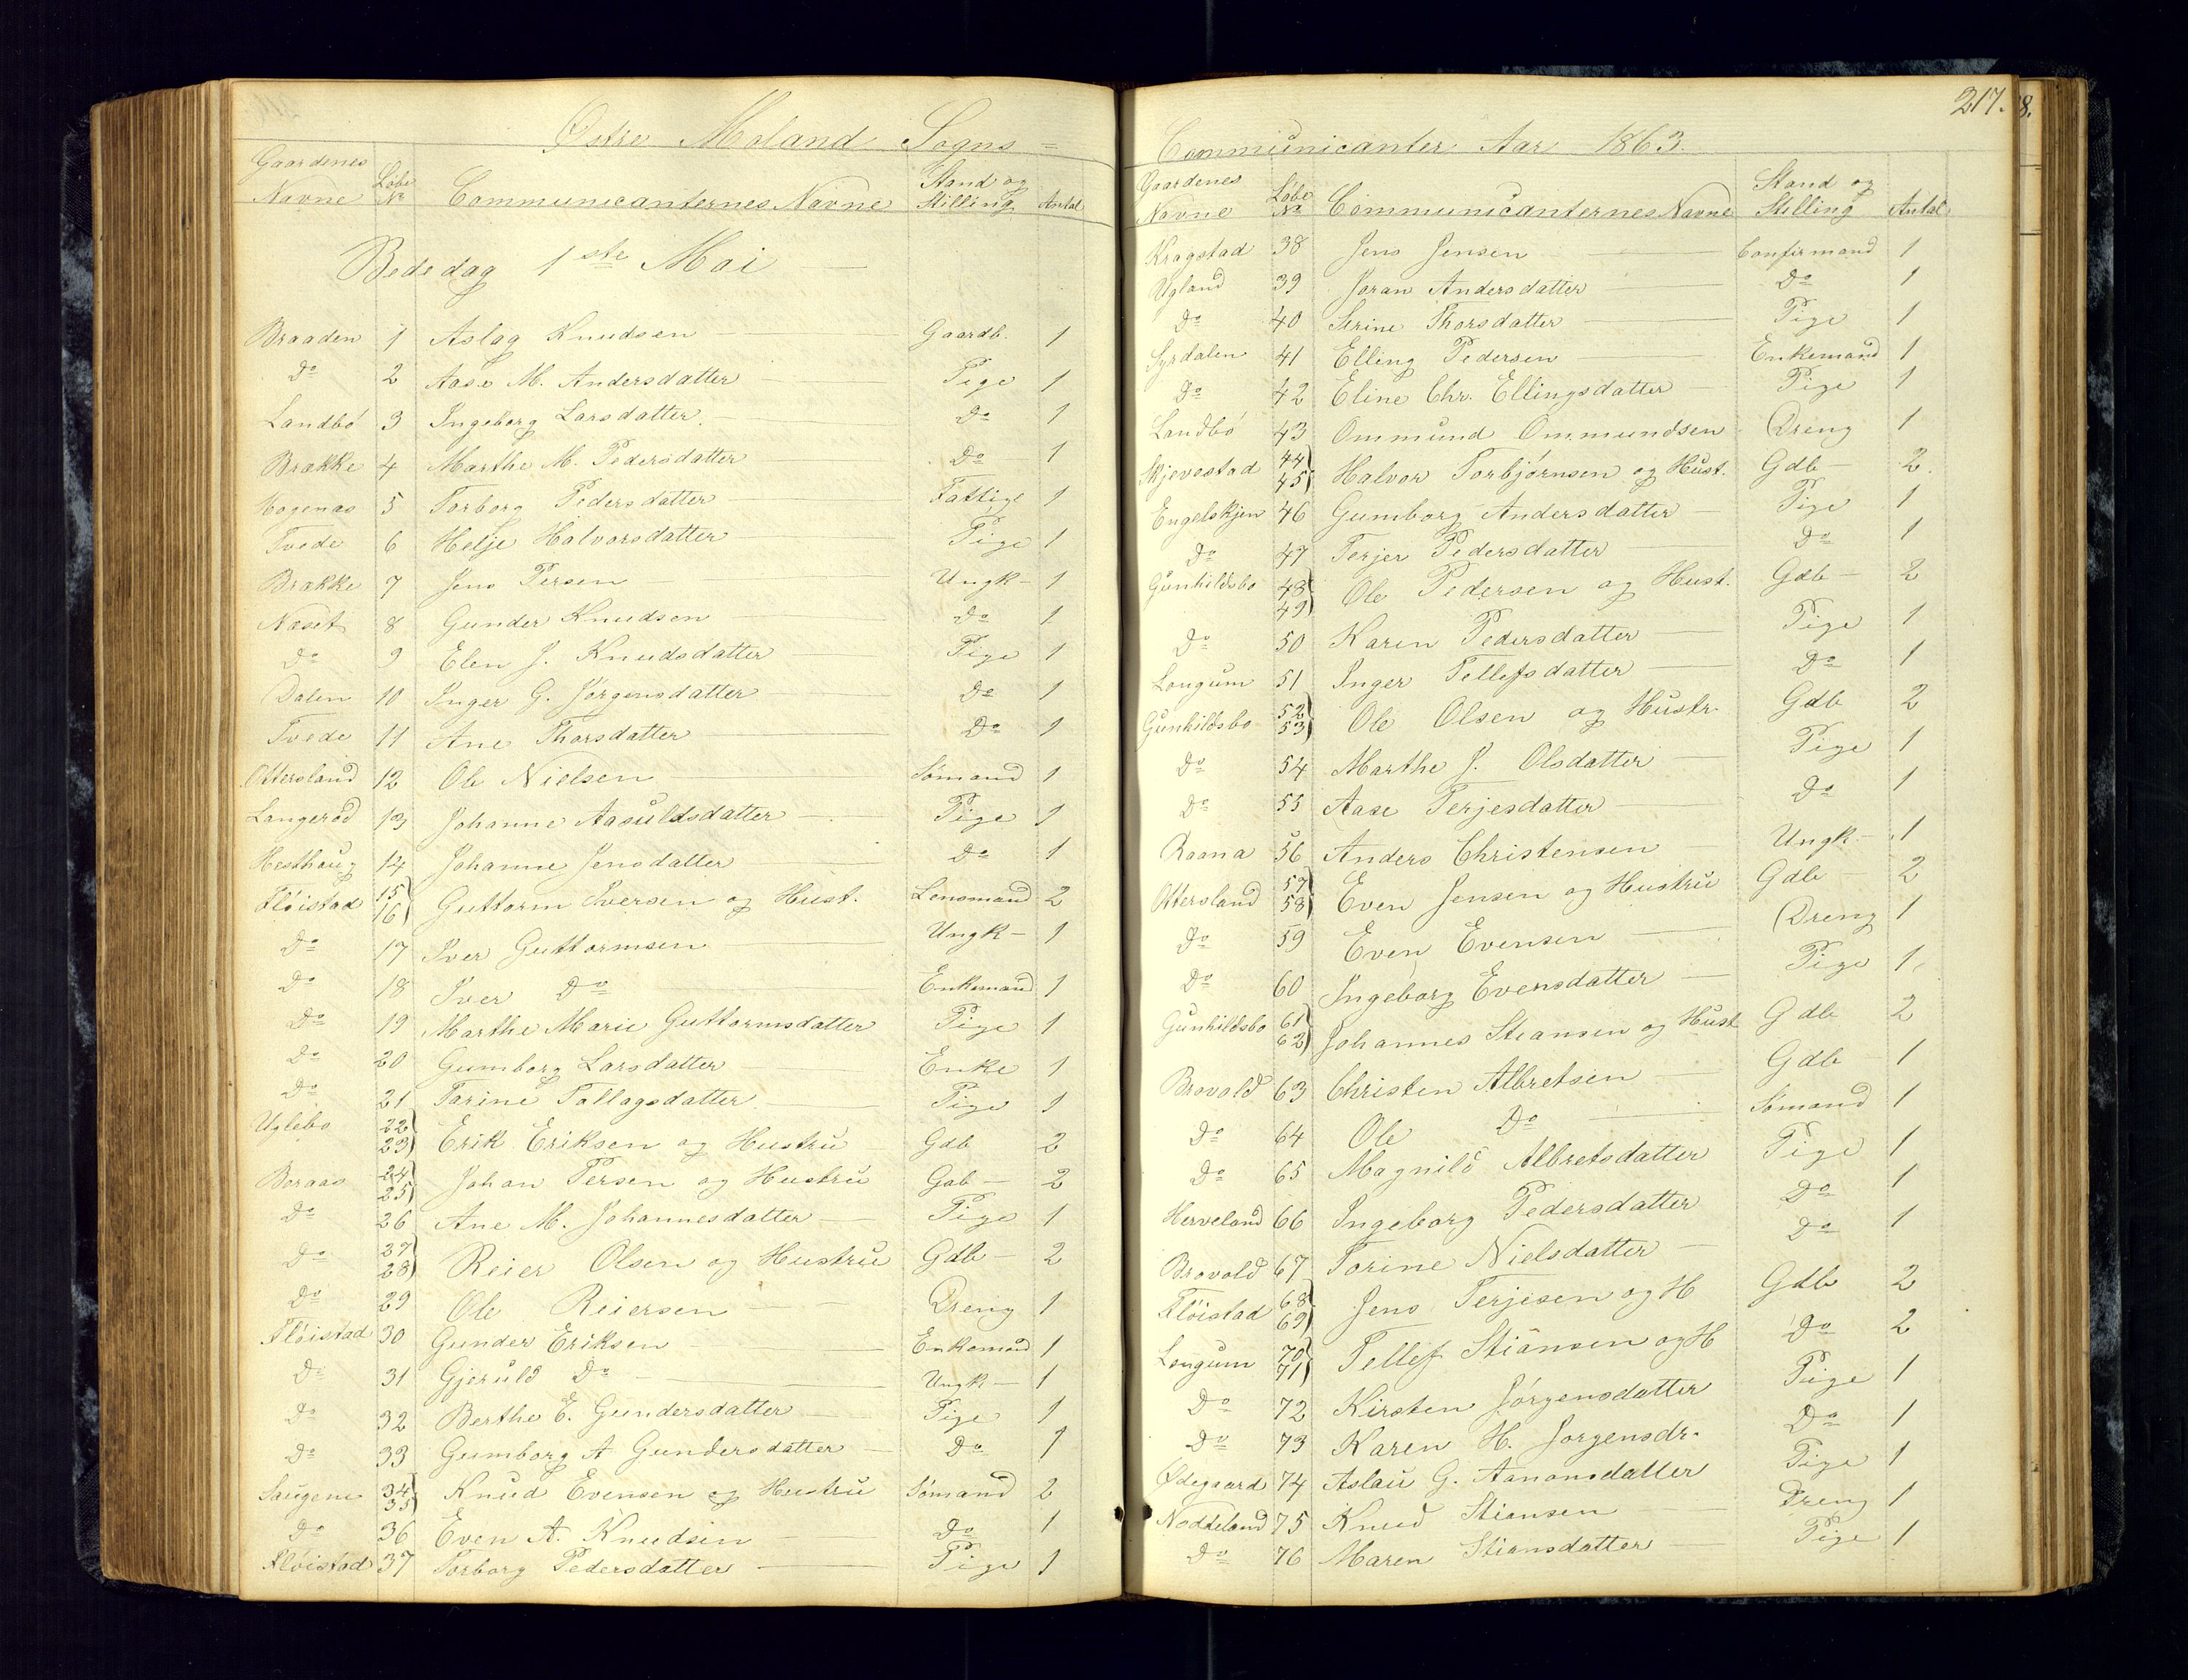 Østre Moland Sogns =
Gaardenes Navne Løbe No Communicanternes Navne Stand og Stilling Antal
Bededag 1ste Mai
Braaden 1 Aslag Knudsen Gaardb. 1
Do 2 Aase M. Andersdatter Pige 1
Landbö 3 Ingeborg Larsdatter Do 1
Brække 4 Marthe M. Pedersdatter Do 1
5 Torborg Pedersdatter Fattige 1
Tvede 6 Helje Halvorsdatter Pige 1
Brække 7 Jens Persen Ungk- 1
Næset 8 Gunder Knudsen Do 1
Do 9 Elen J. Knudsdatter Pige 1
Dalen 10 Inger G. Jørgensdatter Do 1
Tvede 11 Ane Thorsdatter Do 1
Ottersland 12 Ole Nielsen Sømand 1
Langeröd 13 Johanne Aasuldsdatter Pige 1
Hesthaug 14 Johanne Jensdatter Do 1
Flöistad 15 16) Guttorm Iversen og Hust. Lensmand 2
Do 17 Iver Guttormsen Ungk- 1
Do 18 Iver Do Enkemand 1
Do 19 Marthe Marie Guttormsdatter Pige 1
Do 20 Gumborg Larsdatter Enke 1
Do 21 Tarine Tallagsdatter Pige 1
Uglebo 22 23) Erik Eriksen og Hustrü Gdb 2
Boraas 24 25) Johan Persen og Hustrü Gdb - 2
Do 26 Ane M. Johannesdatter Pige 1
Do 27 28) Reier Olsen og Hustrü Gdb - 2
Do 29 Ole Reiersen Dreng 1
Flöistad 30 Gunder Eriksen Enkemand 1
Do 31 Gjeruld Do Ungk- 1
Do 32 Berthe E. Gundersdatter Pige 1
Do 33 Gumborg A Gundersdatter Do 1
Saugene 34 35) Knud Evensen og Hustrü Sømand 2
Do 36 Even A. Knudsen Do 1
Flöistad 37 Torborg Pedersdatter Pige 1
217.
Communicanter Aar 1863.
Gaardenes Navne Løbe No Communicanternes Navne Stand og Stilling Antal
Kragstad 38 Jens Jensen Confirmand 1
Ugland 39 Joran Andersdatter Do 1
Do 40 Serine Thorsdatter Pige 1
Syrdalen 41 Elling Pedersen Enkemand 1
Do 42 Eline Chr. Ellingsdatter Pige 1
Landbö 43 Ommund Ommundsen Dreng 1
Skjevestad 44 45) Halvor Torbjørnsen og Hust. Gdb - 2.
Engelskjen 46 Gumborg Andersdatter Pige 1
Do 47 Terjer Pedersdatter Do 1
Gunhildsbo 48 49) Ole Pedersen og Hust. Gdb - 2
Do 50 Karen Pedersdatter Pige 1
Longum 51 Inger Tellefsdatter Do 1
Gunhildsbo 52 53) Ole Olsen og Hustr. Gdb 2
Do 54 Marthe J. Olsdatter Pige 1
Do 55 Aase Terjesdatter Do 1
Raana 56 Anders Christensen Ungk- 1
Ottersland 57 58) Even Jensen og Hustrü Gdb - 2
Do 59 Even Evensen Dreng 1
Do 60 Ingeborg Evensdatter Pige 1
Gunhildsbo 61 62) Johannes Stiansen og Hust Gdb 2
Brovold 63 Christen Albretsen Gdb 1
Do 64 Ole Do Sømand 1
Do 65 Magnild Albretsdatter Pige 1
Herveland 66 Ingeborg Pedersdatter Do 1
Brovold 67 Torine Nielsdatter Do 1
Flöistad 68 69) Jens Terjesen og H Gdb 2
Longum 70 71) Tellef Stiansen og H Do 2
Do 72 Kirsten Jörgensdatter Pige 1
Do 73 Karen H. Jorgensdr. Do 1
Ødegaard 74 Aslau G. Aanonsdatter Pige 1
Noddeland 75 Knud Stiansen Dreng 1
Do 76 Maren Stiansdatter Pige 1
8.